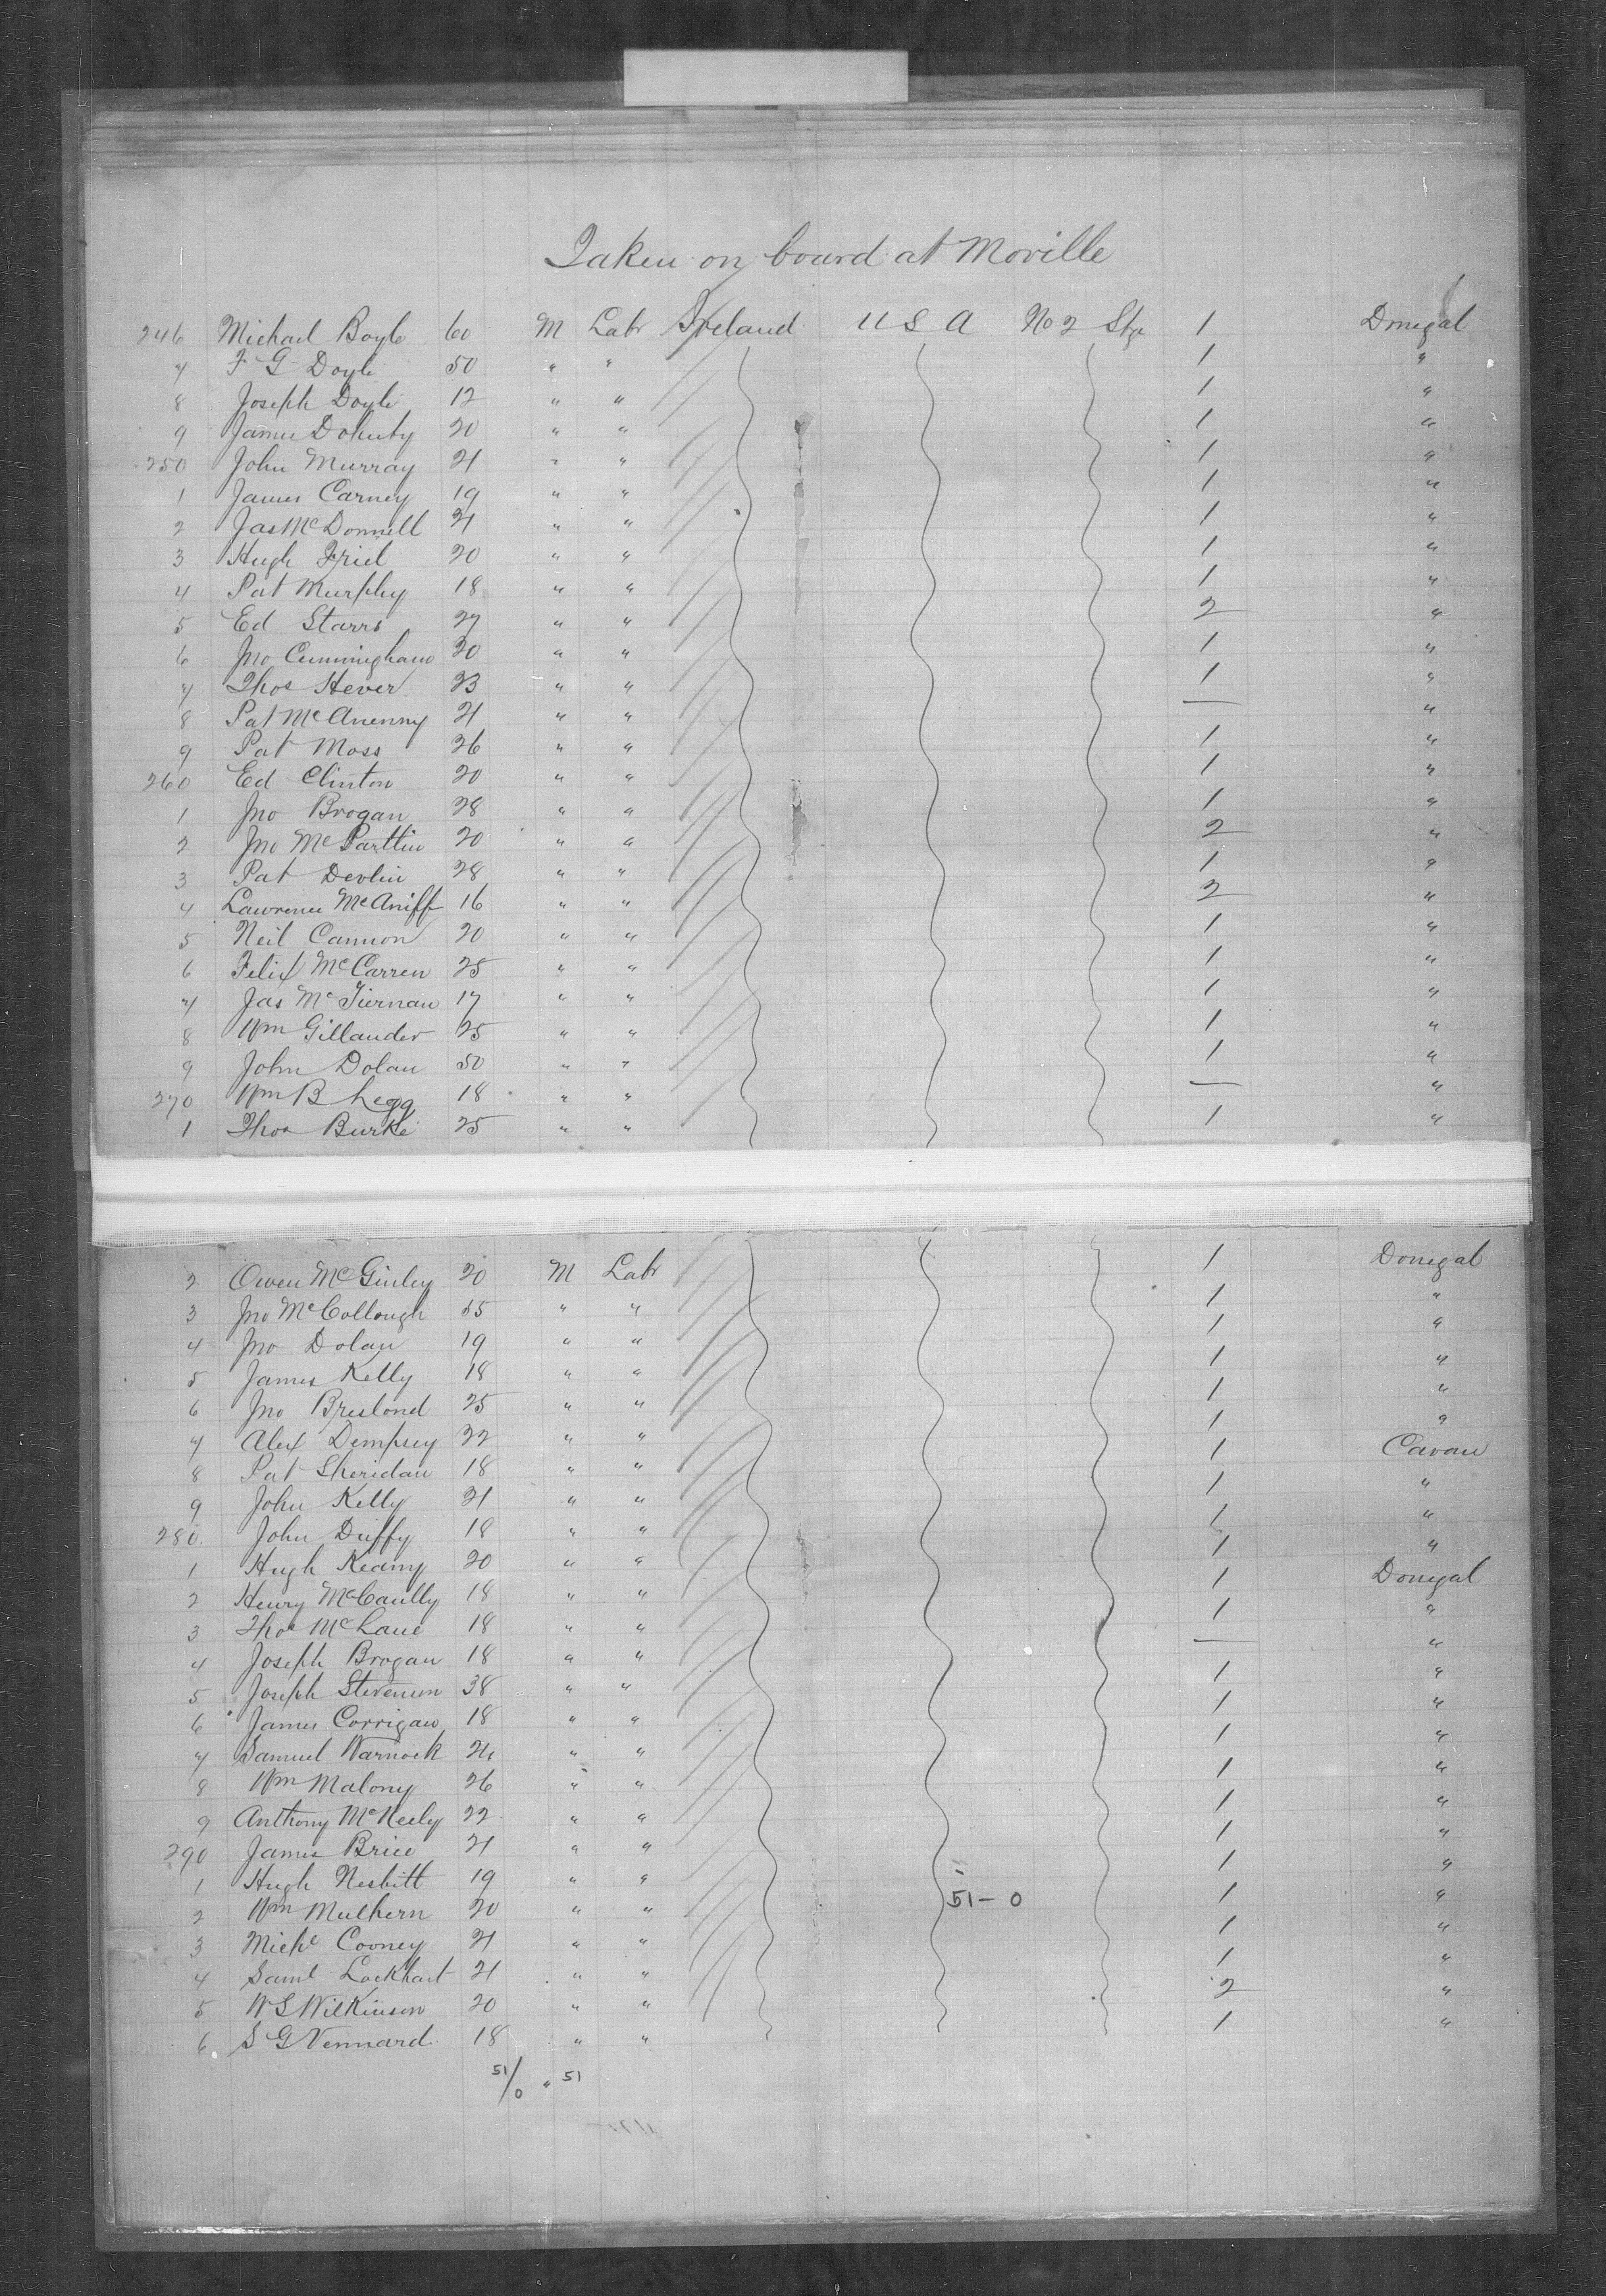 Taken on board at Moville
246 Michael Boyle 60 M Labr Ireland U S A No 2 Stge 1 Donegal
7 F G Doyle 50 " " 1 "
8 Joseph Doyle 12 " " 1 "
9 James Doherty 20 " " 1 "
250 John Murray 21 " " 1 "
1 James Carney 19 " " 1 "
2 Jas McDonnell 21 " " 1 "
3 Hugh Friel 20 " " 1 "
4 Pat Murphy 18 " " 1 "
5 Ed Starrs 27 " " 2 "
6 Jno Cunningham 20 " " 1 "
7 Thos Hever 23 " " 1 "
8 Pat McAnenny 21 " " — "
9 Pat Moss 26 " " 1 "
260 Ed Clinton 20 " " 1 "
1 Jno Brogan 28 " " 1 "
2 Jno McPartlin 20 " " 2 "
3 Pat Devlin 28 " " 1 "
4 Lawrence McAniff 16 " " 2 "
5 Neil Cannon 20 " " 1 "
6 Felix McCarren 25 " " 1 "
7 Jas McTiernan 17 " " 1 "
8 Wm Gillander 25 " " 1 "
9 John Dolan 50 " " 1 "
270 Wm B Legg 18 " " — "
1 Thos Burke 25 " " 1 "
2 Owen McGinley 20 M Labr 1 Donegal
3 Jno McCollough 55 " " 1 "
4 Jno Dolan 19 " " 1 "
5 James Kelly 18 " " 1 "
6 Jno Breslond 25 " " 1 "
7 Alex Dempsey 22 " " 1 "
8 Pat Sheridan 18 " " 1 Cavan
9 John Kelly 21 " " 1 "
280 John Duffy 18 " " 1 "
1 Hugh Keamy 20 " " 1 "
2 Henry McCaully 18 " " 1 Donegal
3 Thos McLane 18 " " 1 "
4 Joseph Brogan 18 " " — "
5 Joseph Stevenson 38 " " 1 "
6 James Corrigan 18 " " 1 "
7 Samuel Warnock 21 " " 1 "
8 Wm Malony 26 " " 1 "
9 Anthony McNeely 22 " " 1 "
290 James Brice 21 " " 1 "
1 Hugh Nesbitt 19 " " 1 "
2 Wm Mulhern 20 " " 51-0 1 "
3 Michl Cooney 21 " " 1 "
4 Saml Lockhart 21 " " 1 "
5 W S Wilkinson 20 " " 2 "
6 S G Vennard 18 " " 1 "
51/0 " 51